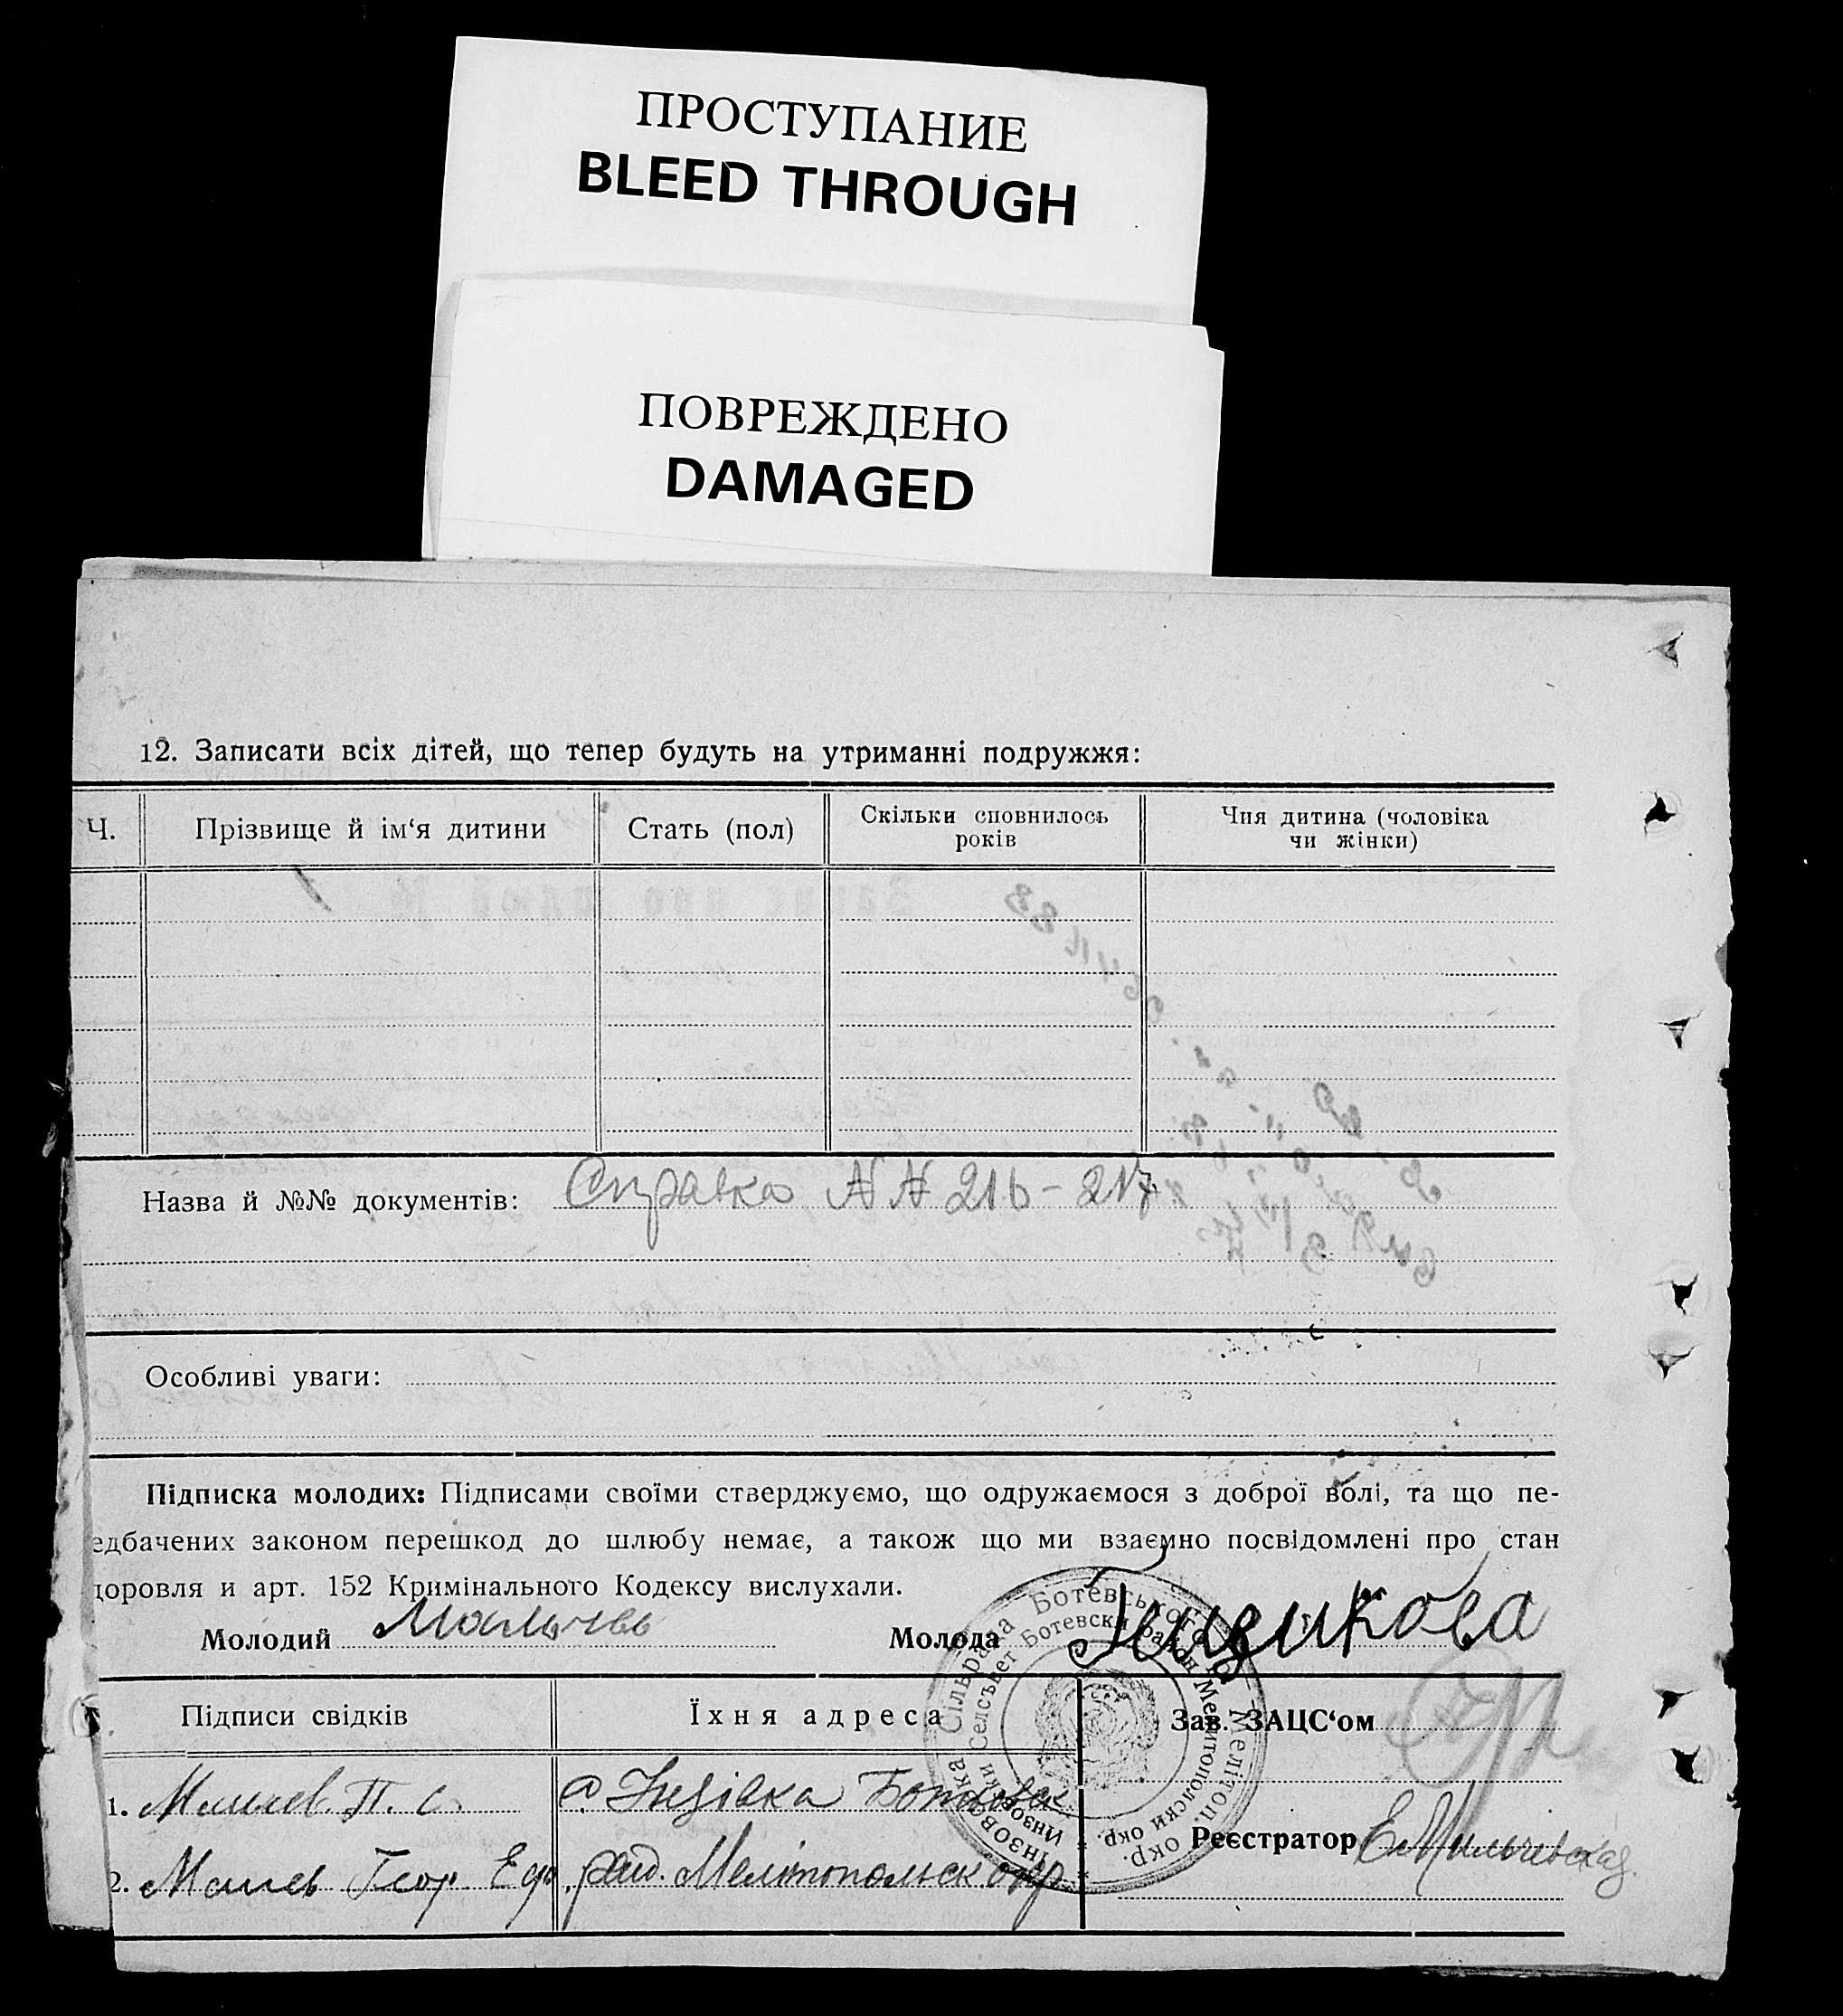 ПРОСТУПАНИЕ
BLEED THROUGH
ПОВРЕЖДЕНО
DAMAGED
12. Записати всіх дітей, що тепер будуть на утриманні подружжя:
Ч. Прізвище й ім‘я дитини Стать (пол) Скільки сповнилось років Чия дитина (чоловіка чи жінки)
Назва й №№ документів: Справка N N 216 - 217
Особливі уваги:
Підписка молодих: Підписами своїми стверджуємо, що одружаємося з доброї волі, та що пе-
едбачених законом перешкод до шлюбу немає, а також що ми взаємно посвідомлені про стан
доровля и арт. 152 Кримінального Кодексу вислухали.
Молодий Молода
Інзовська Сільрада Ботевського р. Мелітоп. окр.
Инзовски Селсъвет Ботевски район Мелитополски окр.
Підписи свідків Їхня адреса Зав. ЗАЦС‘ом
1. П. С. Інзівка Ботівськ
Реєстратор
2. Геор Мелітопольск окр.